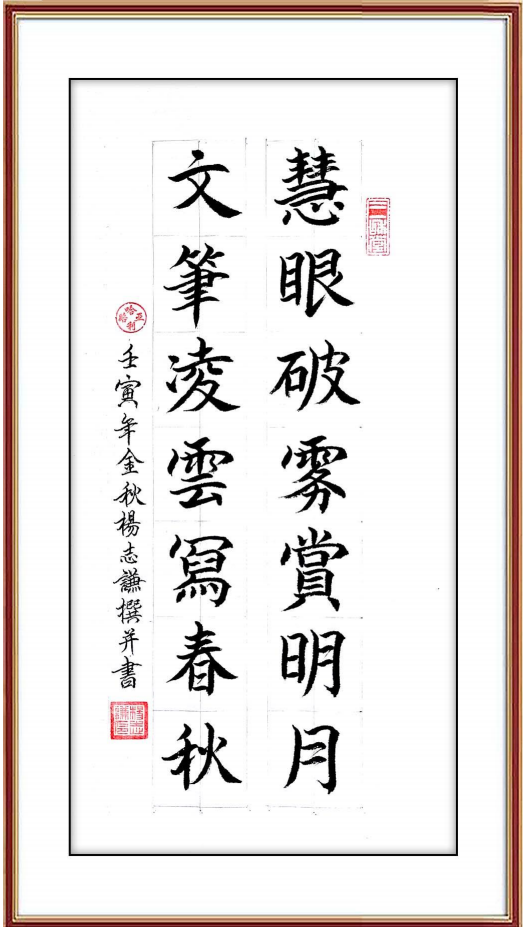 慧眼破雾賞明月
文筆凌雲寫春秋
壬寅年金秋楊志謙撰并書